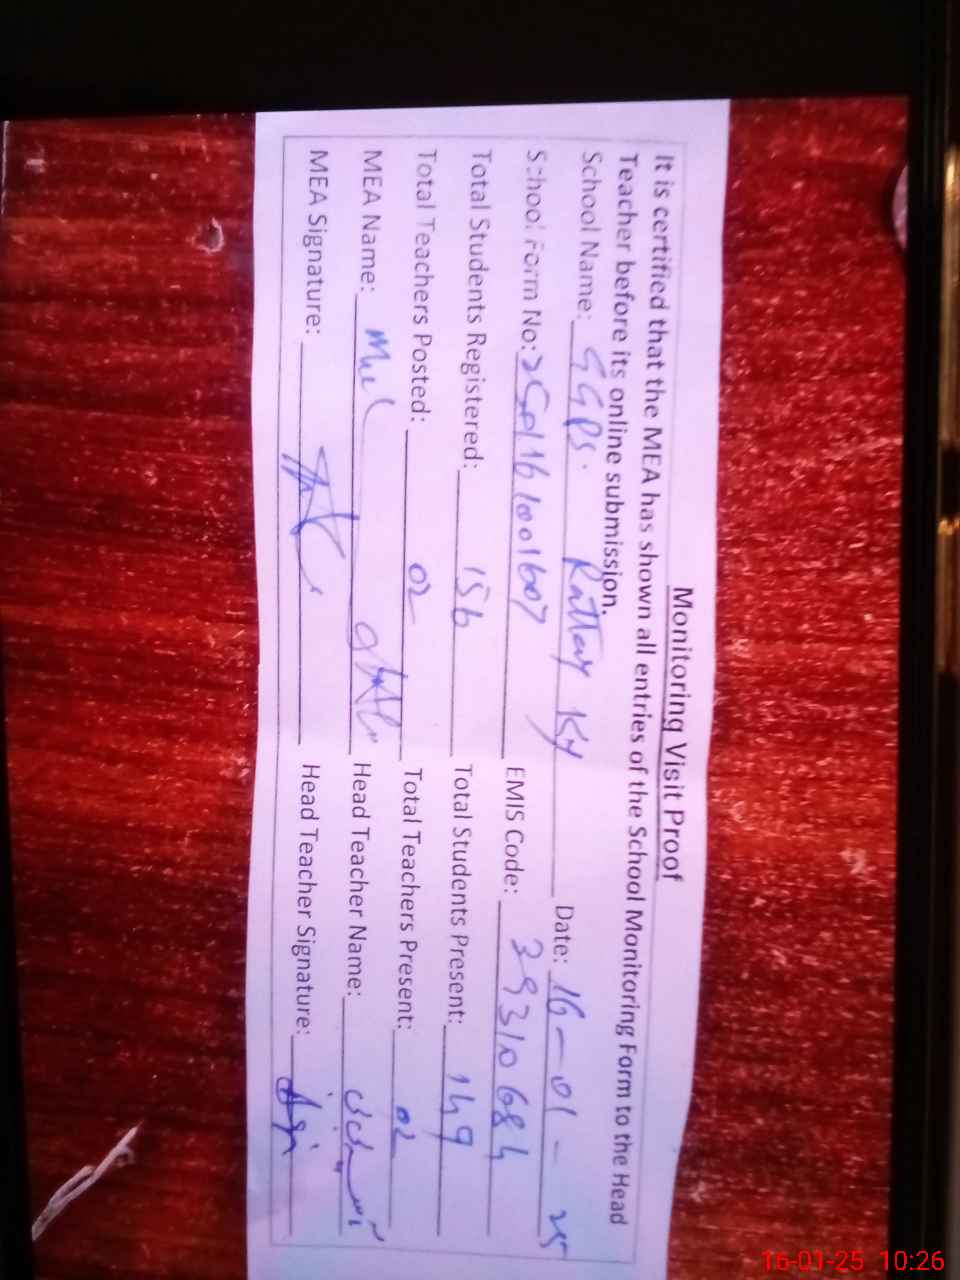 Monitoring Visit Proof
It is certified that the MEA has shown all entries of the School Monitoring Form to the Head
Teacher before its online submission.
School Name: GGPS. Rattay Date: 16-01-25
School Form No: EMIS Code: 39310684
Total Students Registered: 156 Total Students Present: 149
Total Teachers Posted: 02 Total Teachers Present: 02
MEA Name: Head Teacher Name:
MEA Signature: Head Teacher Signature:
16-01-25 10:26